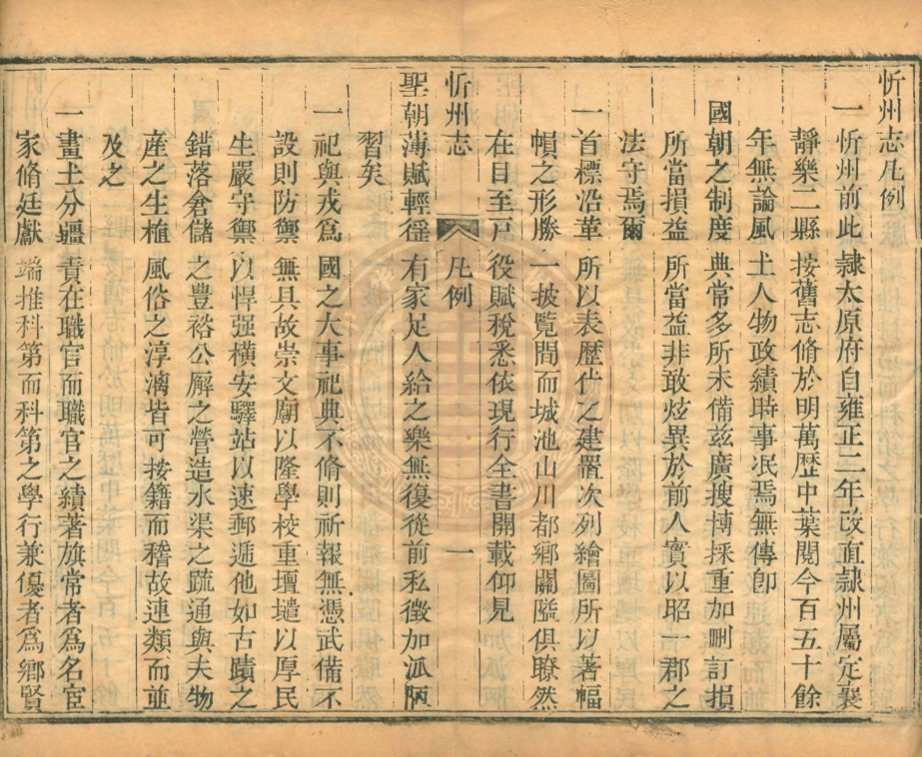 忻州志凡例
一忻州前此隸太原府自雍正二年改直隸州屬定襄
靜樂二縣按舊志脩於明萬歷中葉閱今百五十餘
年無論風土人物政績時事冺焉無傳卽
國朝之制度典常多所未備兹廣搜博採重加刪訂損
所當損益所當益非敢炫異於前人實以昭一郡之
法守焉爾
一首標沿革所以表歷代之建置次列繪圖所以著幅
幀之形勝一披覽間而城池山川都鄉關隘俱瞭然
在目至戸役賦稅悉依現行全書開載仰見
忻州志 凡例 一
聖朝薄賦輕徭有家足人給之樂無復從前私徵加派陋
習矣
一祀與戎爲國之大事祀典不脩則祈報無憑武備不
設則防禦無具故崇文廟以隆學校重壇壝以厚民
生嚴守禦以悍强橫安驛站以速郵遞他如古蹟之
錯落倉儲之豊裕公廨之營造水渠之疏通與夫物
產之生植風俗之淳漓皆可按籍而稽故連類而並
及之
一畫土分疆責在職官而職官之績著旗常者爲名宦
家脩廷獻端推科第而科第之學行兼優者爲鄉賢